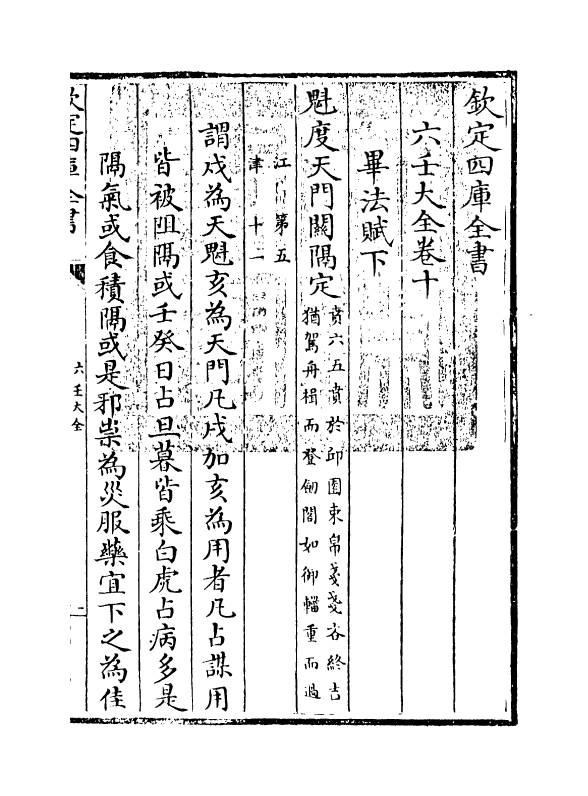 欽定四庫全書
六壬大全卷十
畢法賦下
魁度天門關隔定
賁六五賁於邱園束帛戔戔吝終吉
猶駕舟楫而登劒閣如御輜重而過
江　第五
津　十二
謂戌為天魁亥為天門凡戌加亥為用者凡占謀用
皆被阻隔或壬癸日占旦暮皆乘白虎占病多是
隔氣或食積隔或是邪祟為災服藥宜下之為佳
欽定四庫全書
六壬大全